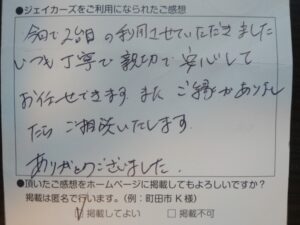 ●ジェイカーズをご利用になられたご感想
今回で2台目の利用させていただきました
いつも丁寧で親切で安心して
お任せできます。また ご縁がありまし
たら ご相談いたします。
ありがとうございました。
●頂いたご感想をホームページに掲載してもよろしいですか?
掲載は匿名で行います。(例:町田市K様)
☑掲載してよい □掲載不可